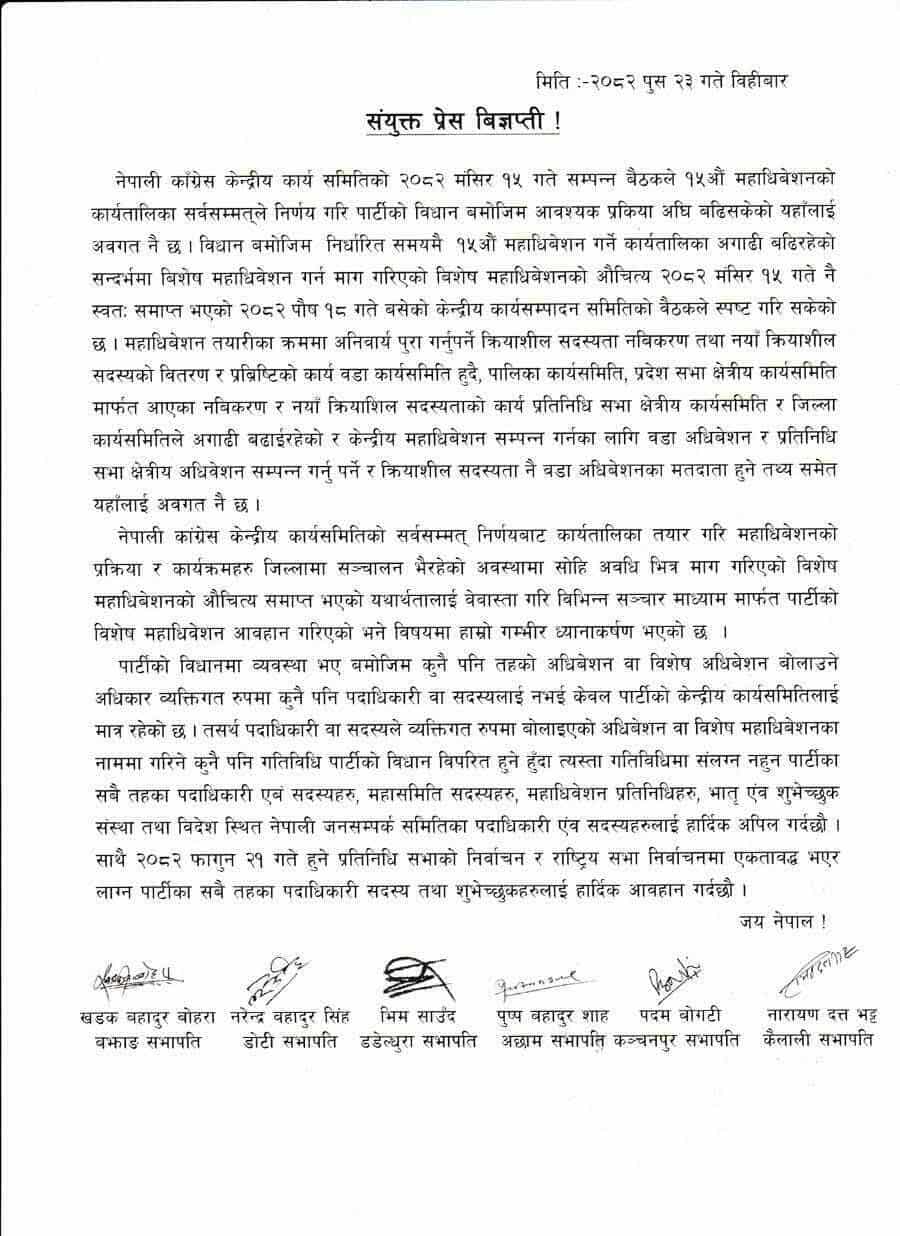 मिति :-२०८२ पुस २३ गते विहीबार
संयुक्त प्रेस बिज्ञप्ती !
नेपाली काँग्रेस केन्द्रीय कार्य समितिको २०८२ मंसिर १५ गते सम्पन्न बैठकले १५औं महाधिबेशनको
कार्यतालिका सर्वसम्मत्ले निर्णय गरि पार्टीको विधान बमोजिम आवश्यक प्रकिया अघि बढिसकेको यहाँलाई
अवगत नै छ । विधान बमोजिम निर्धारित समयमै १५औं महाधिबेशन गर्ने कार्यतालिका अगाढी बढिरहेको
सन्दर्भमा बिशेष महाधिवेशन गर्न माग गरिएको बिशेष महाधिबेशनको औचित्य २०८२ मंसिर १५ गते नै
स्वतः समाप्त भएको २०८२ पौष १८ गते बसेको केन्द्रीय कार्यसम्पादन समितिको बैठकले स्पष्ट गरि सकेको
छ । महाधिबेशन तयारीका क्रममा अनिवार्य पुरा गर्नुपर्ने क्रियाशील सदस्यता नविकरण तथा नयाँ क्रियाशील
सदस्यको वितरण र प्रब्रिष्टिको कार्य वडा कार्यसमिति हुदै, पालिका कार्यसमिति, प्रदेश सभा क्षेत्रीय कार्यसमिति
मार्फत आएका नबिकरण र नयाँ क्रियाशिल सदस्यताको कार्य प्रतिनिधि सभा क्षेत्रीय कार्यसमिति र जिल्ला
कार्यसमितिले अगाढी बढाईरहेको र केन्द्रीय महाधिबेशन सम्पन्न गर्नका लागि वडा अधिबेशन र प्रतिनिधि
सभा क्षेत्रीय अधिवेशन सम्पन्न गर्नु पर्ने र क्रियाशील सदस्यता नै वडा अधिबेशनका मतदाता हुने तथ्य समेत
यहाँलाई अवगत नै छ ।
नेपाली कांग्रेस केन्द्रीय कार्यसमितिको सर्वसम्मत् निर्णयबाट कार्यतालिका तयार गरि महाधिबेशनको
प्रक्रिया र कार्यक्रमहरु जिल्लामा सञ्चालन भैरहेको अवस्थामा सोहि अवधि भित्र माग गरिएको विशेष
महाधिबेशनको औचित्य समाप्त भएको यथार्थतालाई वेवास्ता गरि विभिन्न सञ्चार माध्याम मार्फत पार्टीको
विशेष महाधिवेशन आवहान गरिएको भने विषयमा हाम्रो गम्भीर ध्यानाकर्षण भएको छ ।
पार्टीको विधानमा व्यवस्था भए बमोजिम कुनै पनि तहको अधिबेशन वा विशेष अधिबेशन बोलाउने
अधिकार व्यक्तिगत रुपमा कुनै पनि पदाधिकारी वा सदस्यलाई नभई केवल पार्टीको केन्द्रीय कार्यसमितिलाई
मात्र रहेको छ । तसर्थ पदाधिकारी वा सदस्यले व्यक्तिगत रुपमा बोलाइएको अधिबेशन वा विशेष महाधिबेशनका
नाममा गरिने कुनै पनि गतिविधि पार्टीको विधान विपरित हुने हुँदा त्यस्ता गतिविधिमा संलग्न नहुन पार्टीका
सबै तहका पदाधिकारी एबं सदस्यहरु, महासमिति सदस्यहरु, महाधिवेशन प्रतिनिधिहरु, भातृ एंव शुभेच्छुक
संस्था तथा विदेश स्थित नेपाली जनसम्पर्क समितिका पदाधिकारी एंव सदस्यहरुलाई हार्दिक अपिल गर्दछौ ।
साथै २०८२ फागुन २१ गते हुने प्रतिनिधि सभाको निर्वाचन र राष्ट्रिय सभा निर्वाचनमा एकतावद्ध भएर
लाग्न पार्टीका सबै तहका पदाधिकारी सदस्य तथा शुभेच्छुकहरुलाई हार्दिक आवहान गर्दछौ ।
जय नेपाल !
खडक बहादुर बोहरा नरेन्द्र बहादुर सिंह भिम साउँद पुष्प बहादुर शाह पदम बोगटी नारायण दत्त भट्ट
बझाङ सभापति डोटी सभापति डडेल्धुरा सभापति अछाम सभापति कञ्चनपुर सभापति कैलाली सभापति